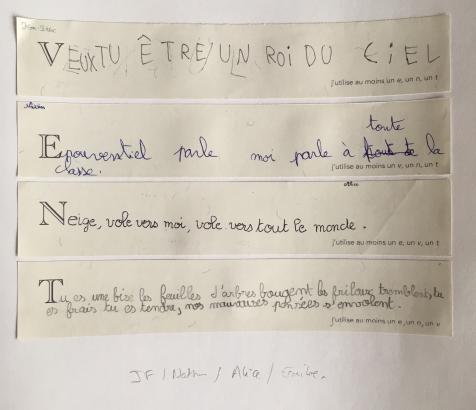 VEUX TU ÊTRE UN ROI DU CIEL
j'utilise au moins un e, un n, un t
toute
Epouventiel parle moi parle à la
classe.
j'utilise au moins un v, un n, un t
Alice
Neige, vole vers moi, vole vers tout le monde.
j'utilise au moins un e, un v, un t
Tu es une bise les feuilles d'arbres bougent les frileux tremblent, tu
es frais tu es tendre, nos mauvaises pensées s'envolent.
j'utilise au moins un e, un n, un v
JF / Nathan / Alice /